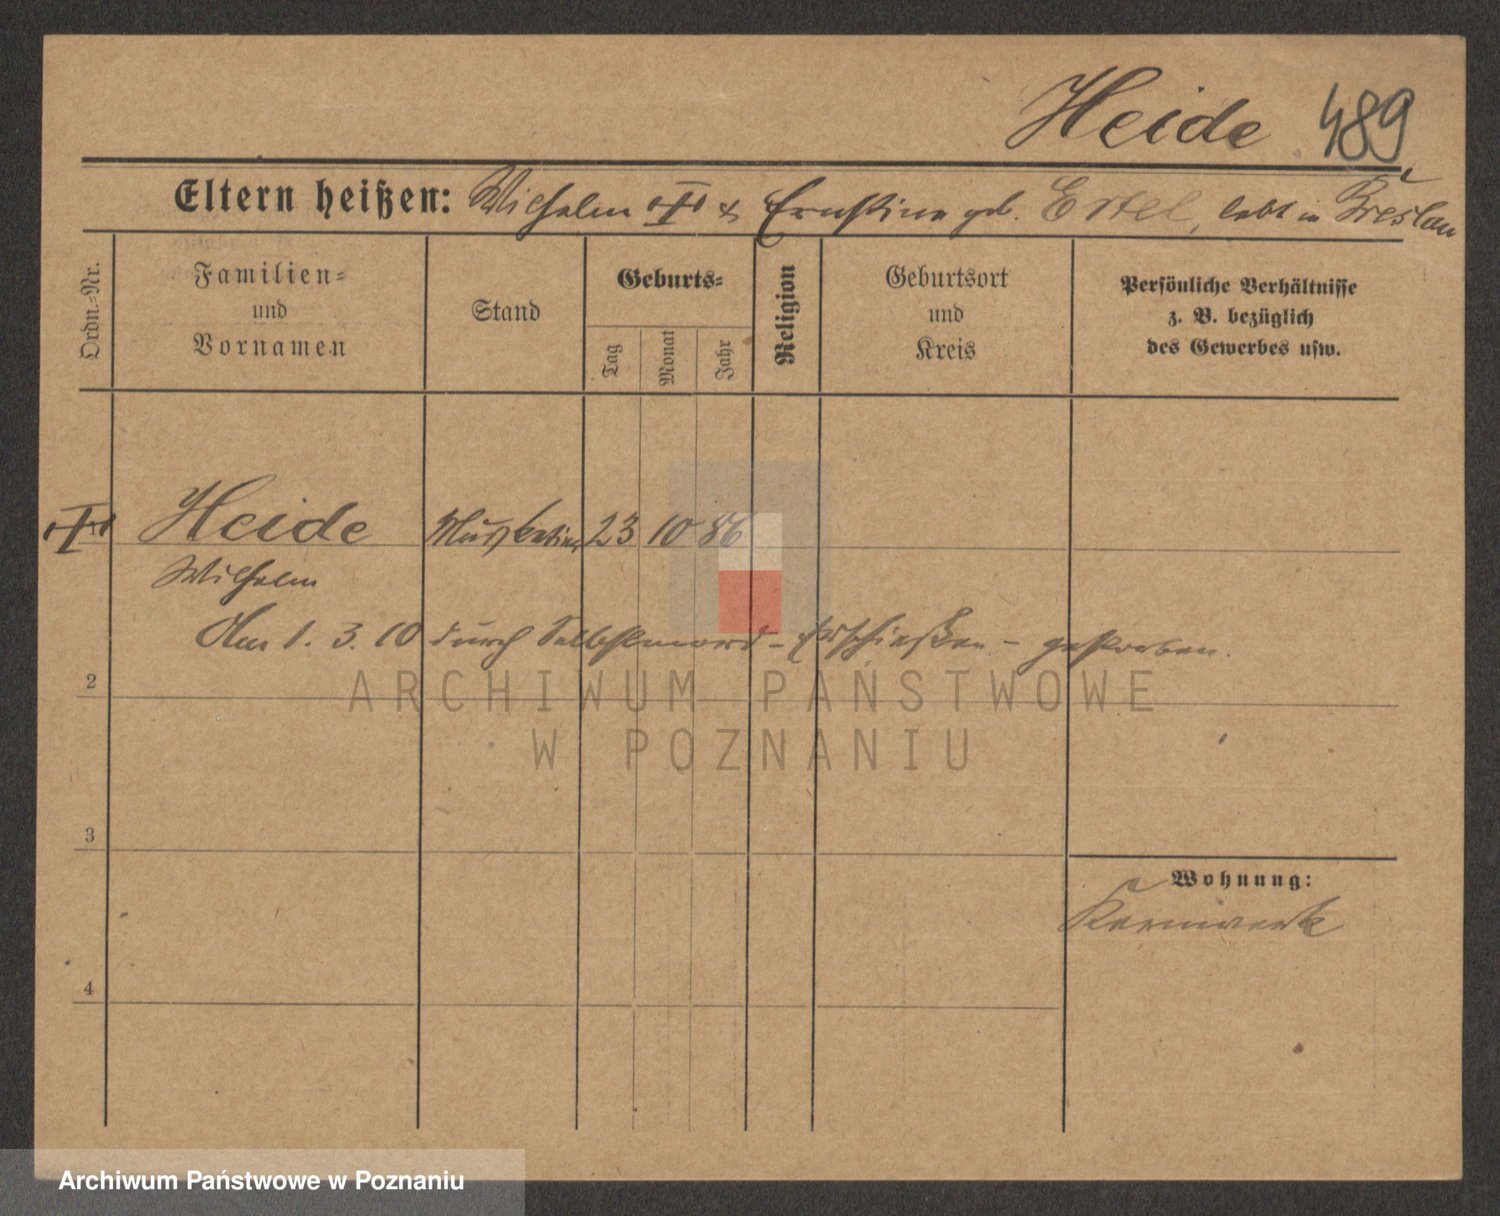 Heide 489
Eltern heißen: Wilhelm & Ernstine geb. Ertel, lebt in Breslau
Ordn.=Nr.
Familien=
und
Vornamen
Stand
Geburts=
Tag
Monat
Jahr
Religion
Geburtsort
und
Kreis
Persönliche Verhältnisse
z. B. bezüglich
des Gewerbes usw.
Heide Musketier 23 10 86
Wilhelm
Am 1. 3. 10 durch Selbstmord - Erschießen - gestorben.
2
ARCHIWUM PAŃSTWOWE
W POZNANIU
3
Wohnung:
Kernwerk
4
Archiwum Państwowe w Poznaniu